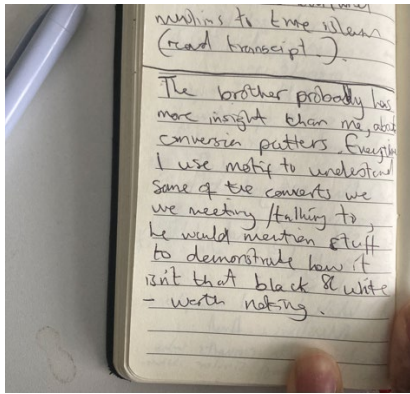 muslims to true islam
(read transcript.).
The brother probably has
more insight than me, about
conversion patters. Everytime
I use motif to understand
some of the converts we
we meeting / talking to,
he would mention stuff
to demonstrate how it
isn't that black & white
- worth noting.